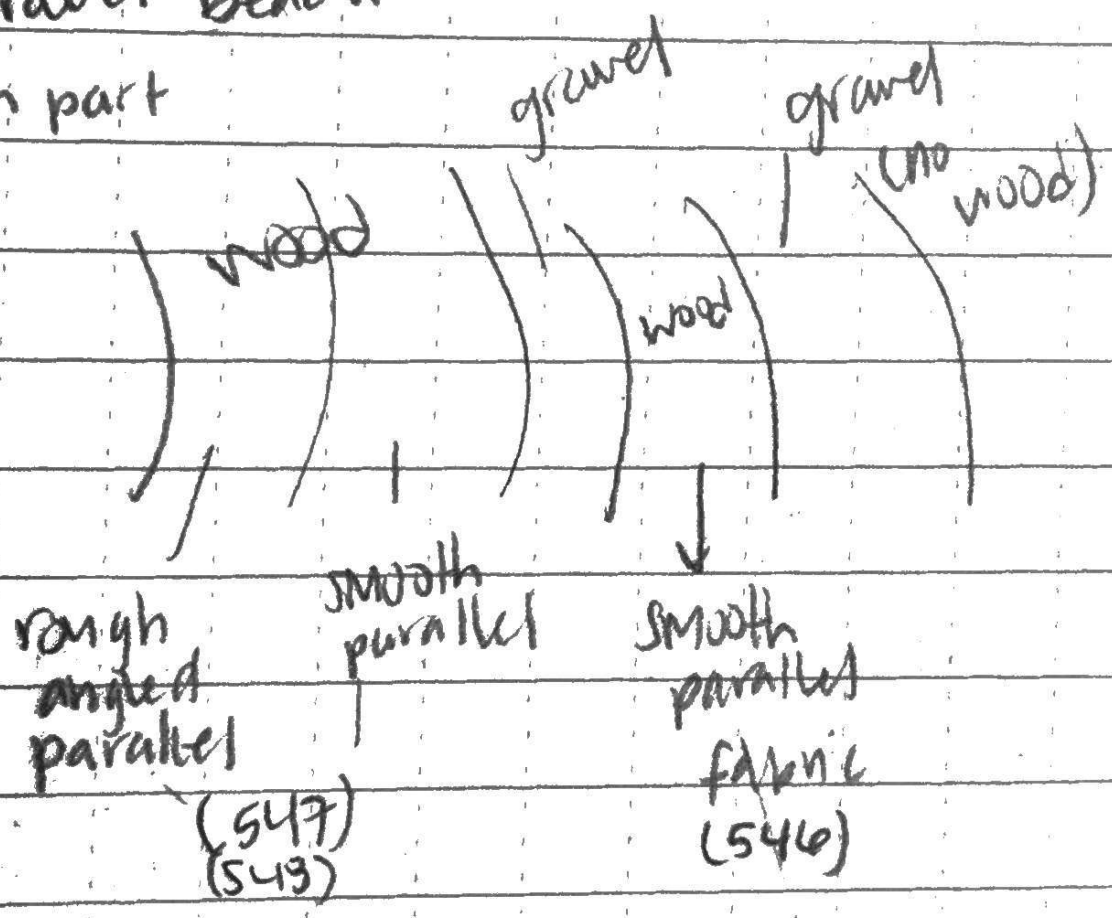 part
gravel
gravel
(no
wood)
wood
wood
rough
angled
parallel
smooth
parallel
(547)
(543)
smooth
parallel
fabric
(546)